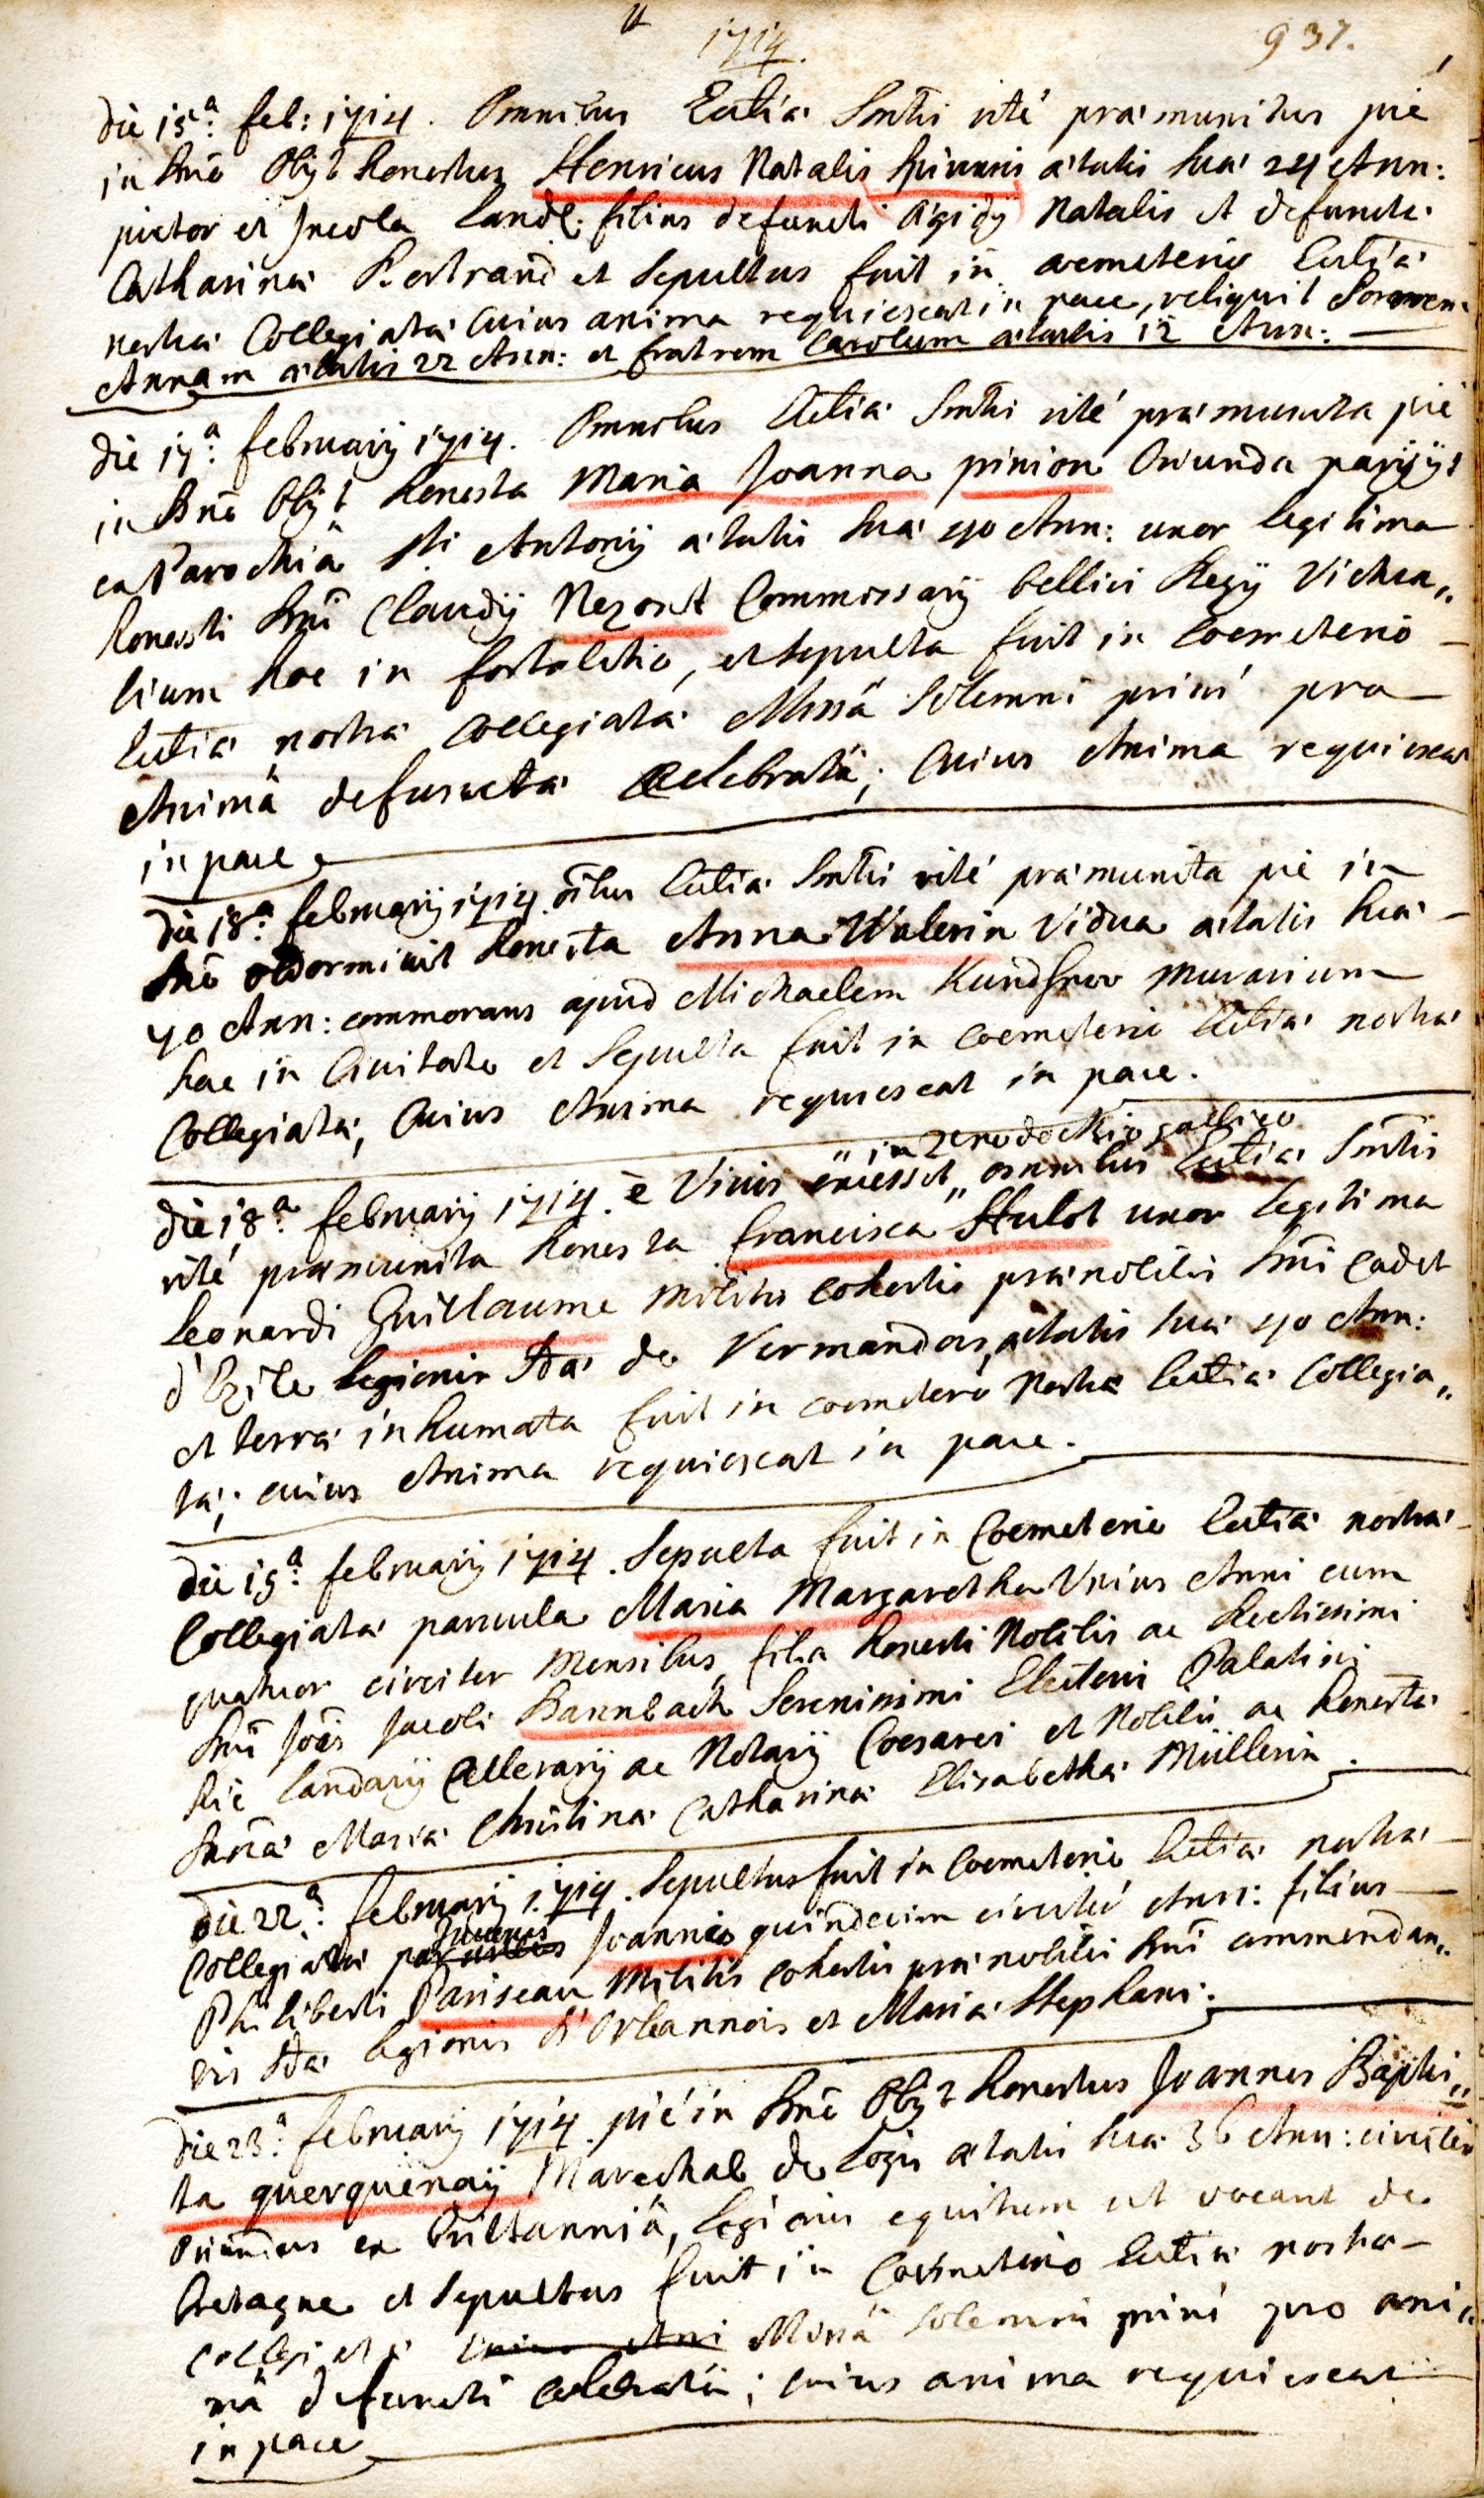 1714.
937.
die 15ª: feb: 1714. Omnibus Eccliæ Smtis rité præmunitus pie
in Dnõ Obijt honestus Henricus Natalis ætatis suæ 24 Ann:
pictor et Incola Land: filius defuncti Ægidij Natalis et defunctæ
Catharinæ Bertrand et Sepultus fuit in coemeterio Eccliæ
nostræ Collegiatæ Cuius anima requiescat in pace, reliquit Sororem
Annam ætatis 22 Ann: et fratrem Carolum ætatis 12 Ann:
die 17ª: februarij 1714. Omnibus Eccliæ Smtis rité præmunita pié
in Dnõ Obijt honesta Maria Joanna pinion Oriunda parisijs
ex Parochiâ Sti Antonij ætatis suæ 40 Ann: uxor legitima
honesti Dnĩ Claudij Nezont Commissarij bellici Regij Victua„
lium hoc in fortalitio, et sepulta fuit in Coemeterio
Eccliæ nostræ Collegiatæ Missâ Solemni prius pro
Animâ defunctæ Celebratâ; Cuius Anima requiescat
in pace
die 18ª: februarij 1714. oĩbus Eccliæ Smtis rité præmunita pie in
Dnõ obdormivit honesta Anna Walerin Vidua ætatis suæ
70 Ann: commorans apud Michaelem murarium
hac in Civitate et Sepulta fuit in Coemeterio Eccliæ nostræ
Collegiatæ, Cuius Anima requiescat in pace.
„ in Xenodochio gallico
die 18ª: februarij 1714. è Vivis excessit „ omnibus Eccliæ Smtis
rité præmunita honesta francisca Hulot uxor legitima
Leonardi Guillaume Militis cohortis prænobilis Dnĩ Cadet
legionis de Vermandois, ætatis suæ 40 Ann:
et terræ inhumata fuit in coemeterio Nostræ Eccliæ Collegia„
tæ; cuius Anima requiescat in pace.
die 19ª: februarij 1714. Sepulta fuit in Coemeterio Eccliæ nostræ
Collegiatæ parvula Maria Margaretha Unius Anni cum
quatuor circiter Mensibus, filia honesti Nobilis ac Rectissimi
Dnĩ Joãis Jacobi Bannbach Serenissimi Electoris Palatini
hic Landavij Cellerarij ac Notarij Coesarei et Nobilis ac honestæ
Dnæ Mariæ Christinæ Catharinæ Elisabethæ Müllerin.
die 22ª: februarij 1714. Sepultus fuit in Coemeterio Eccliæ nostræ
Collegiatæ Juvenis Joannes quindecim circiter Ann: filius
Philiberti Pariseau Militis cohortis prænobilis Dnĩ commendan„
tis legionis d'Orleannois et Mariæ Stephani.
die 23ª: februarij 1714. pié in Dnõ Obijt honestus Joannes Baptis„
ta querquenaij Marechal de Logis ætatis suæ 36 Ann: circiter
Oriundus ex Brittanniâ, legionis equitum ut vocant de
Bretagne et sepultus fuit in Coemeterio Eccliæ nostræ
collegiatæ Missâ Solemni prius pro ani„
mâ defuncti celebratâ; cuius anima requiescat
in pace